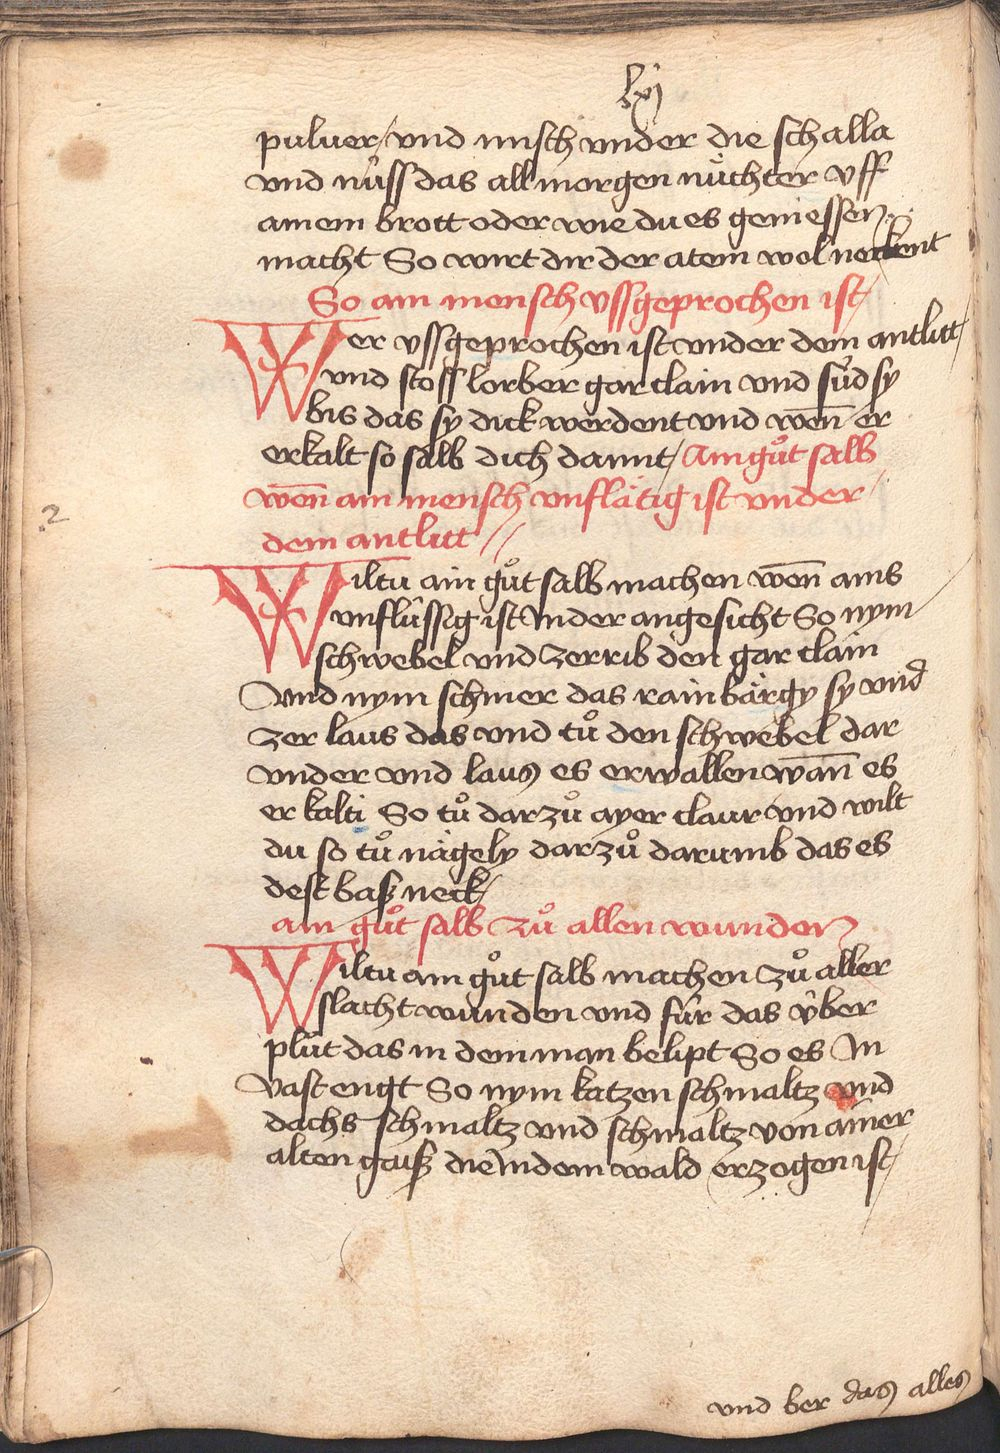 lxj
puluer / vnd misch vnder die schalla
vnd nu̓ss das all morgen nu̓chter vff
ainem brott oder wie du es geniessen
macht So wirt dir der atem wol
So ain mensch vssgeprochen ist /
Wer vssgeprochen ist vnder dem antlitt /
vnd stoss lorber gar clain vnd su̓d sy
bis das sy dick werdent vnd wen̄ er
erkalt so salb dich damit / Ain gůt salb
wen̄ ain mensch vnflätig ist vnder
dem antlitt //
Wiltu ain gůt salb machen wen̄ ains
vnflu̓ssig ist Inder angesicht So nym
schwebel vnd zerrib den gar clain
Vnd nym schmer das rain bärgy sy vnd
zer laus das vnd tů den schwebel dar
vnder vnd laus es erwallen wan̄ es
er kalti So tů darzů ayer claur vnd wilt
du so tů nägely darzů darumb das es
dest bas
ain gůt salb zů allen wunden
Wiltu ain gůt salb machen zů aller
slacht wunden vnd fu̓r das v̓ber
plu̓t das in dem man belipt So es In
vast engt So nym katzen schmaltz vnd
dachs schmaltz vnd schmaltz von ainer
alten gaiß die Indem wald erzogen ist /
vnd ber das alles
2